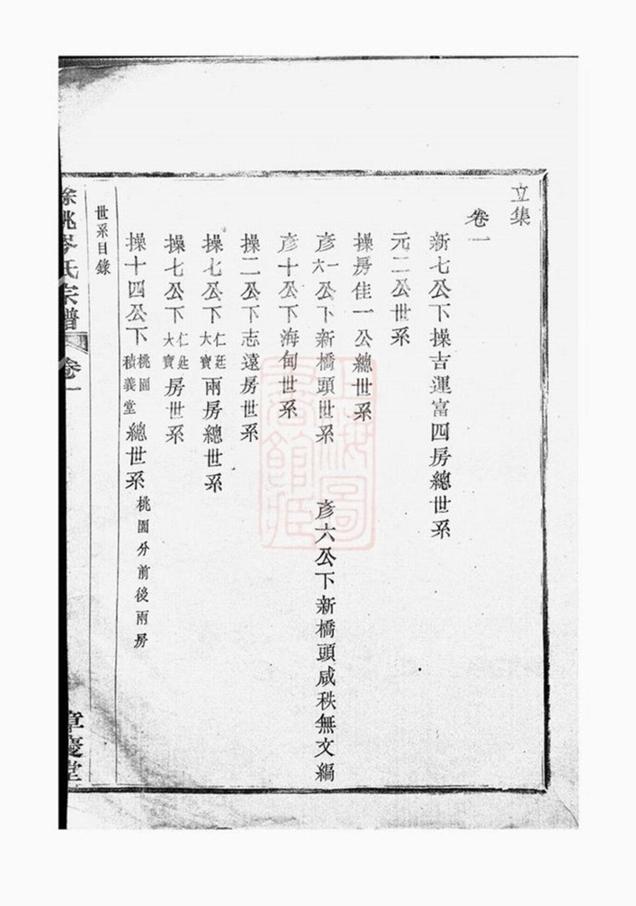 立集
卷一
新七公下操吉運富四房總世系
元二公世系
操房佳一公總世系
彥六一公下新橋頭世系 彥六公下新橋頭咸秩無文編
彥十公下海甸世系
操二公下志遠房世系
操七公下仁廷大寶兩房總世系
操七公下仁廷大寶房世系
操十四公下桃園積義堂總世系桃園分前後兩房
世系目錄
餘姚岑氏宗譜 卷一 章慶堂